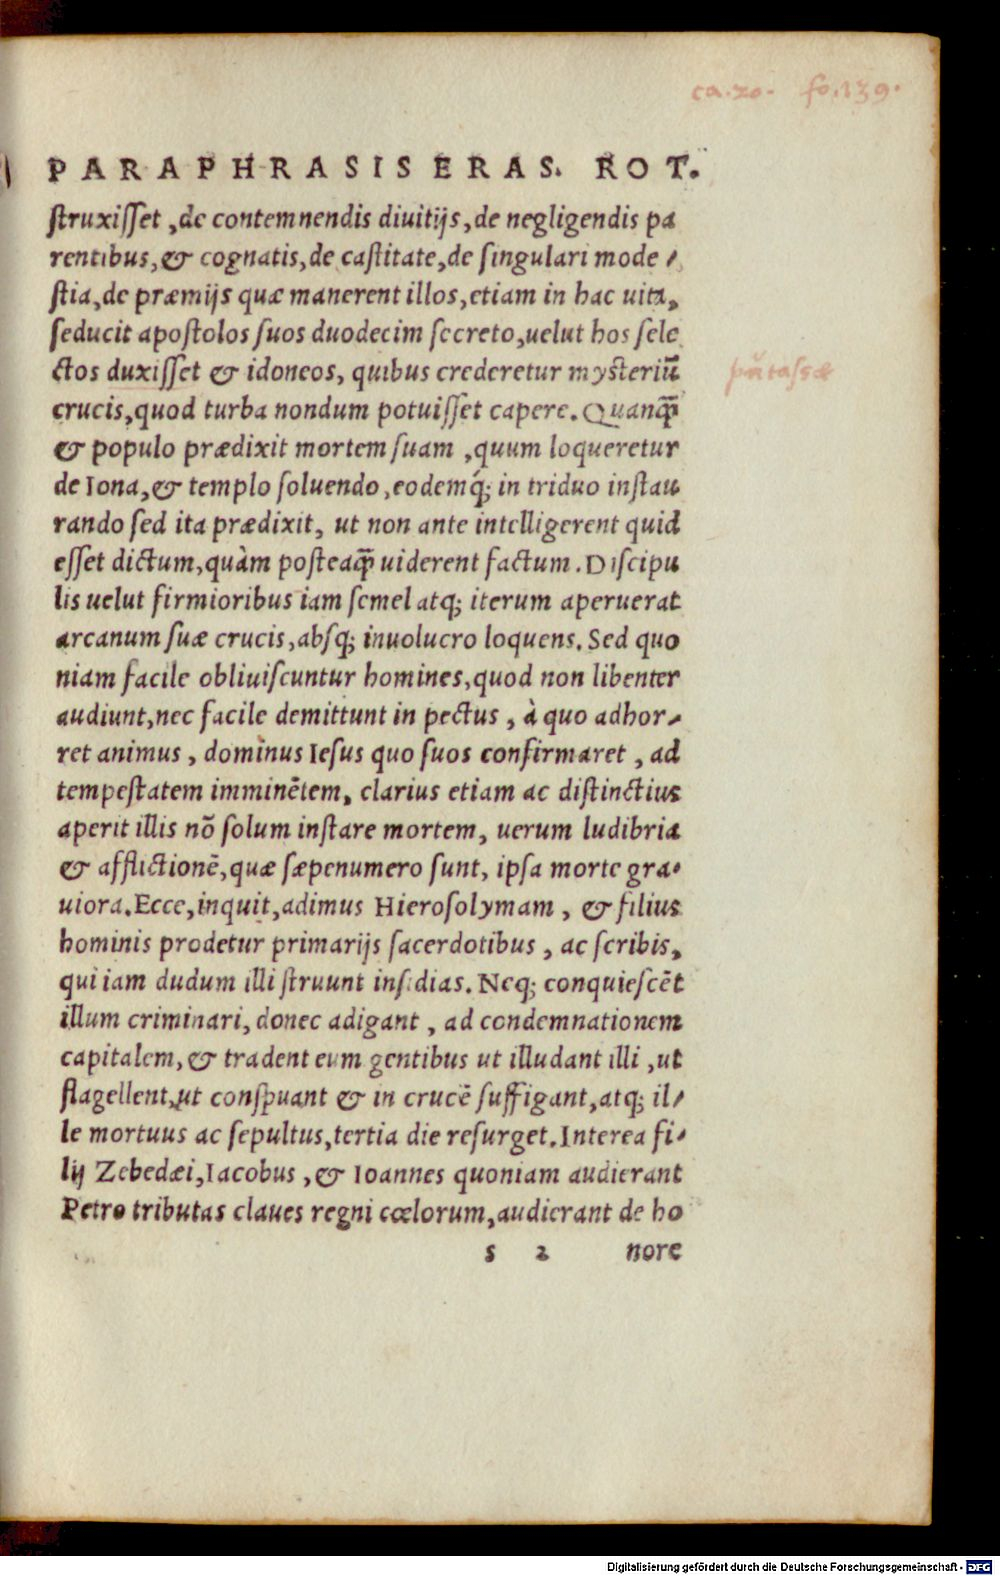 ca. 20. fo. 139.
PARAPHRASIS ERAS. ROT.
ſtruxiſſet, de contemnendis diuitijs, de negligendis pa
rentibus, & cognatis, de caſtitate, de ſingulari mode-
ſtia, de præmijs quæ manerent illos, etiam in hac uita,
ſeducit apoſtolos ſuos duodecim ſecreto, uelut hos ſele
ctos duxiſſet & idoneos, quibus crederetur myſteriū
crucis, quod turba nondum potuiſſet capere. Quanq̃
& populo prædixit mortem ſuam, quum loqueretur
de Iona, & templo ſoluendo, eodemq́; in triduo inſtau
rando ſed ita prædixit, ut non ante intelligerent quid
eſſet dictum, quàm poſteaq̃ uiderent factum. Diſcipu
lis uelut firmioribus iam ſemel atq; iterum aperuerat
arcanum ſuæ crucis, absq; inuolucro loquens. Sed quo
niam facile obliuiſcuntur homines, quod non libenter
audiunt, nec facile demittunt in pectus, à quo adhor-
ret animus, dominus Ieſus quo ſuos confirmaret, ad
tempeſtatem imminētem, clarius etiam ac diſtinctius
aperit illis nō ſolum inſtare mortem, uerum ludibria
& afflictionē, quæ ſæpenumero ſunt, ipſa morte gra-
uiora. Ecce, inquit, adimus Hieroſolymam, & filius
hominis prodetur primarijs ſacerdotibus, ac ſcribis,
qui iam dudum illi ſtruunt inſidias. Neq; conquieſcēt
illum criminari, donec adigant, ad condemnationem
capitalem, & tradent eum gentibus ut illudant illi, ut
flagellent, ut conſpuant & in crucē ſuffigant, atq; il-
le mortuus ac ſepultus, tertia die reſurget. Interea fi-
lij Zebedæi, Iacobus, & Ioannes quoniam audierant
Petro tributas claues regni cœlorum, audierant de ho
s 2 nore
Digitalisierung gefördert durch die Deutsche Forschungsgemeinschaft - DFG